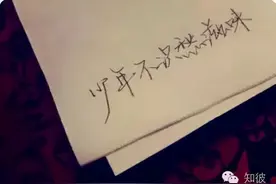 少年不识愁滋味
知彼